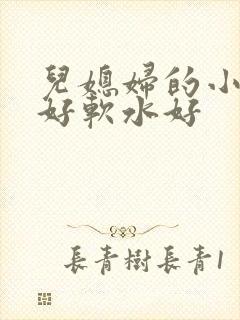 兒媳婦的小
好軟水好
長青樹長青1